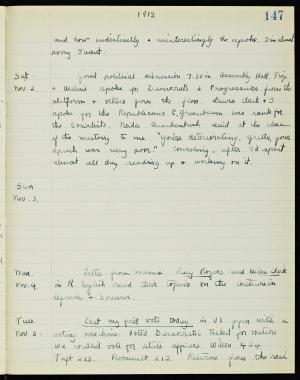 1912
147
and how indistinctly & uninterestingly he spoke. I'm almost
sorry I went.
Sat. Joint political discussion 7.30 in Assembly Hall.
Nov. 2. & Helene spoke for Democrats & Progressives from the
platform & others from the floor. Laura Clark & I
spoke for the Republicans. C. Greenbaum was rank for
the Socialists. said at the close
of the meeting to me "You're deteriorating, your
speech was very poor." Consoling, after I'd spent
almost all day reading up & working on it.
Sun.
Nov. 3.
Mon. Letter from mama. Lucy Rogers and Helen Clark
Nov. 4. in R. English read their topics on the Arthurian
legends & Spenser.
Tues. Cast my first vote today in V.S. gym. with a
Nov. 5. voting machine. Voted Democratic ticket for nation
We couldn't vote for state officers. Wilson
Taft 212. Roosevelt 212. Returns from the real